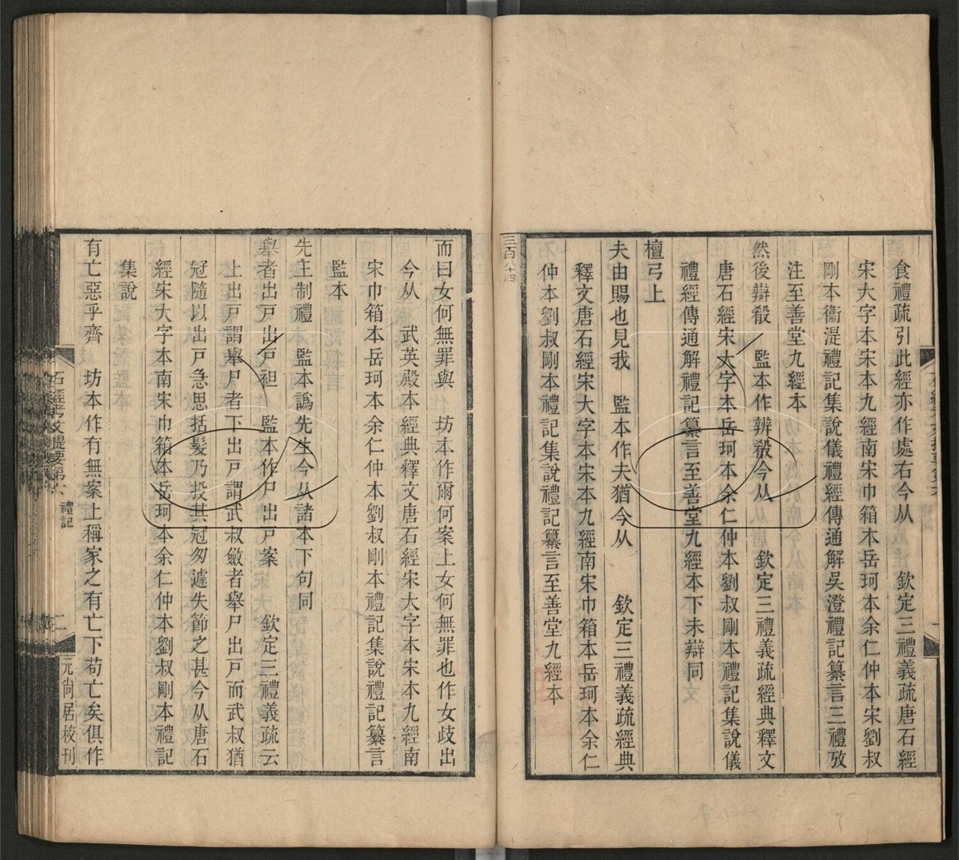 食禮疏引此經亦作處右今从　欽定三禮義疏唐石經
宋大字本宋本九經南宋巾箱本岳珂本余仁仲本宋劉叔
剛本衞湜禮記集說儀禮經傳通解吳澄禮記纂言三禮攷
注至善堂九經本
然後辯殽　監本作辨殽今从　欽定三禮義疏經典釋文
唐石經宋大字本岳珂本余仁仲本劉叔剛本禮記集說儀
禮經傳通解禮記纂言至善堂九經本下未辯同
檀弓上
夫由賜也見我　監本作夫猶今从　欽定三禮義疏經典
釋文唐石經宋大字本宋本九經南宋巾箱本岳珂本余仁
仲本劉叔剛本禮記集說禮記纂言至善堂九經本
三百八十四
而曰女何無罪與　坊本作爾何案上女何無罪也作女歧出
今从　武英殿本經典釋文唐石經宋大字本宋本九經南
宋巾箱本岳珂本余仁仲本劉叔剛本禮記集說禮記纂言
監本
先王制禮　監本譌先生今从諸本下句同
舉者出戸出戸袒　監本作尸出戸案　欽定三禮義疏云
上出戸謂舉尸者下出戸謂武叔斂者舉尸出戸而武叔猶
冠隨以出戸急思括髮乃投其冠匆遽失節之甚今从唐石
經宋大字本南宋巾箱本岳珂本余仁仲本劉叔剛本禮記
集說
有亡惡乎齊　坊本作有無案上稱家之有亡下苟亡矣俱作
石經考文提要第六　禮記
二
元尚居校刊